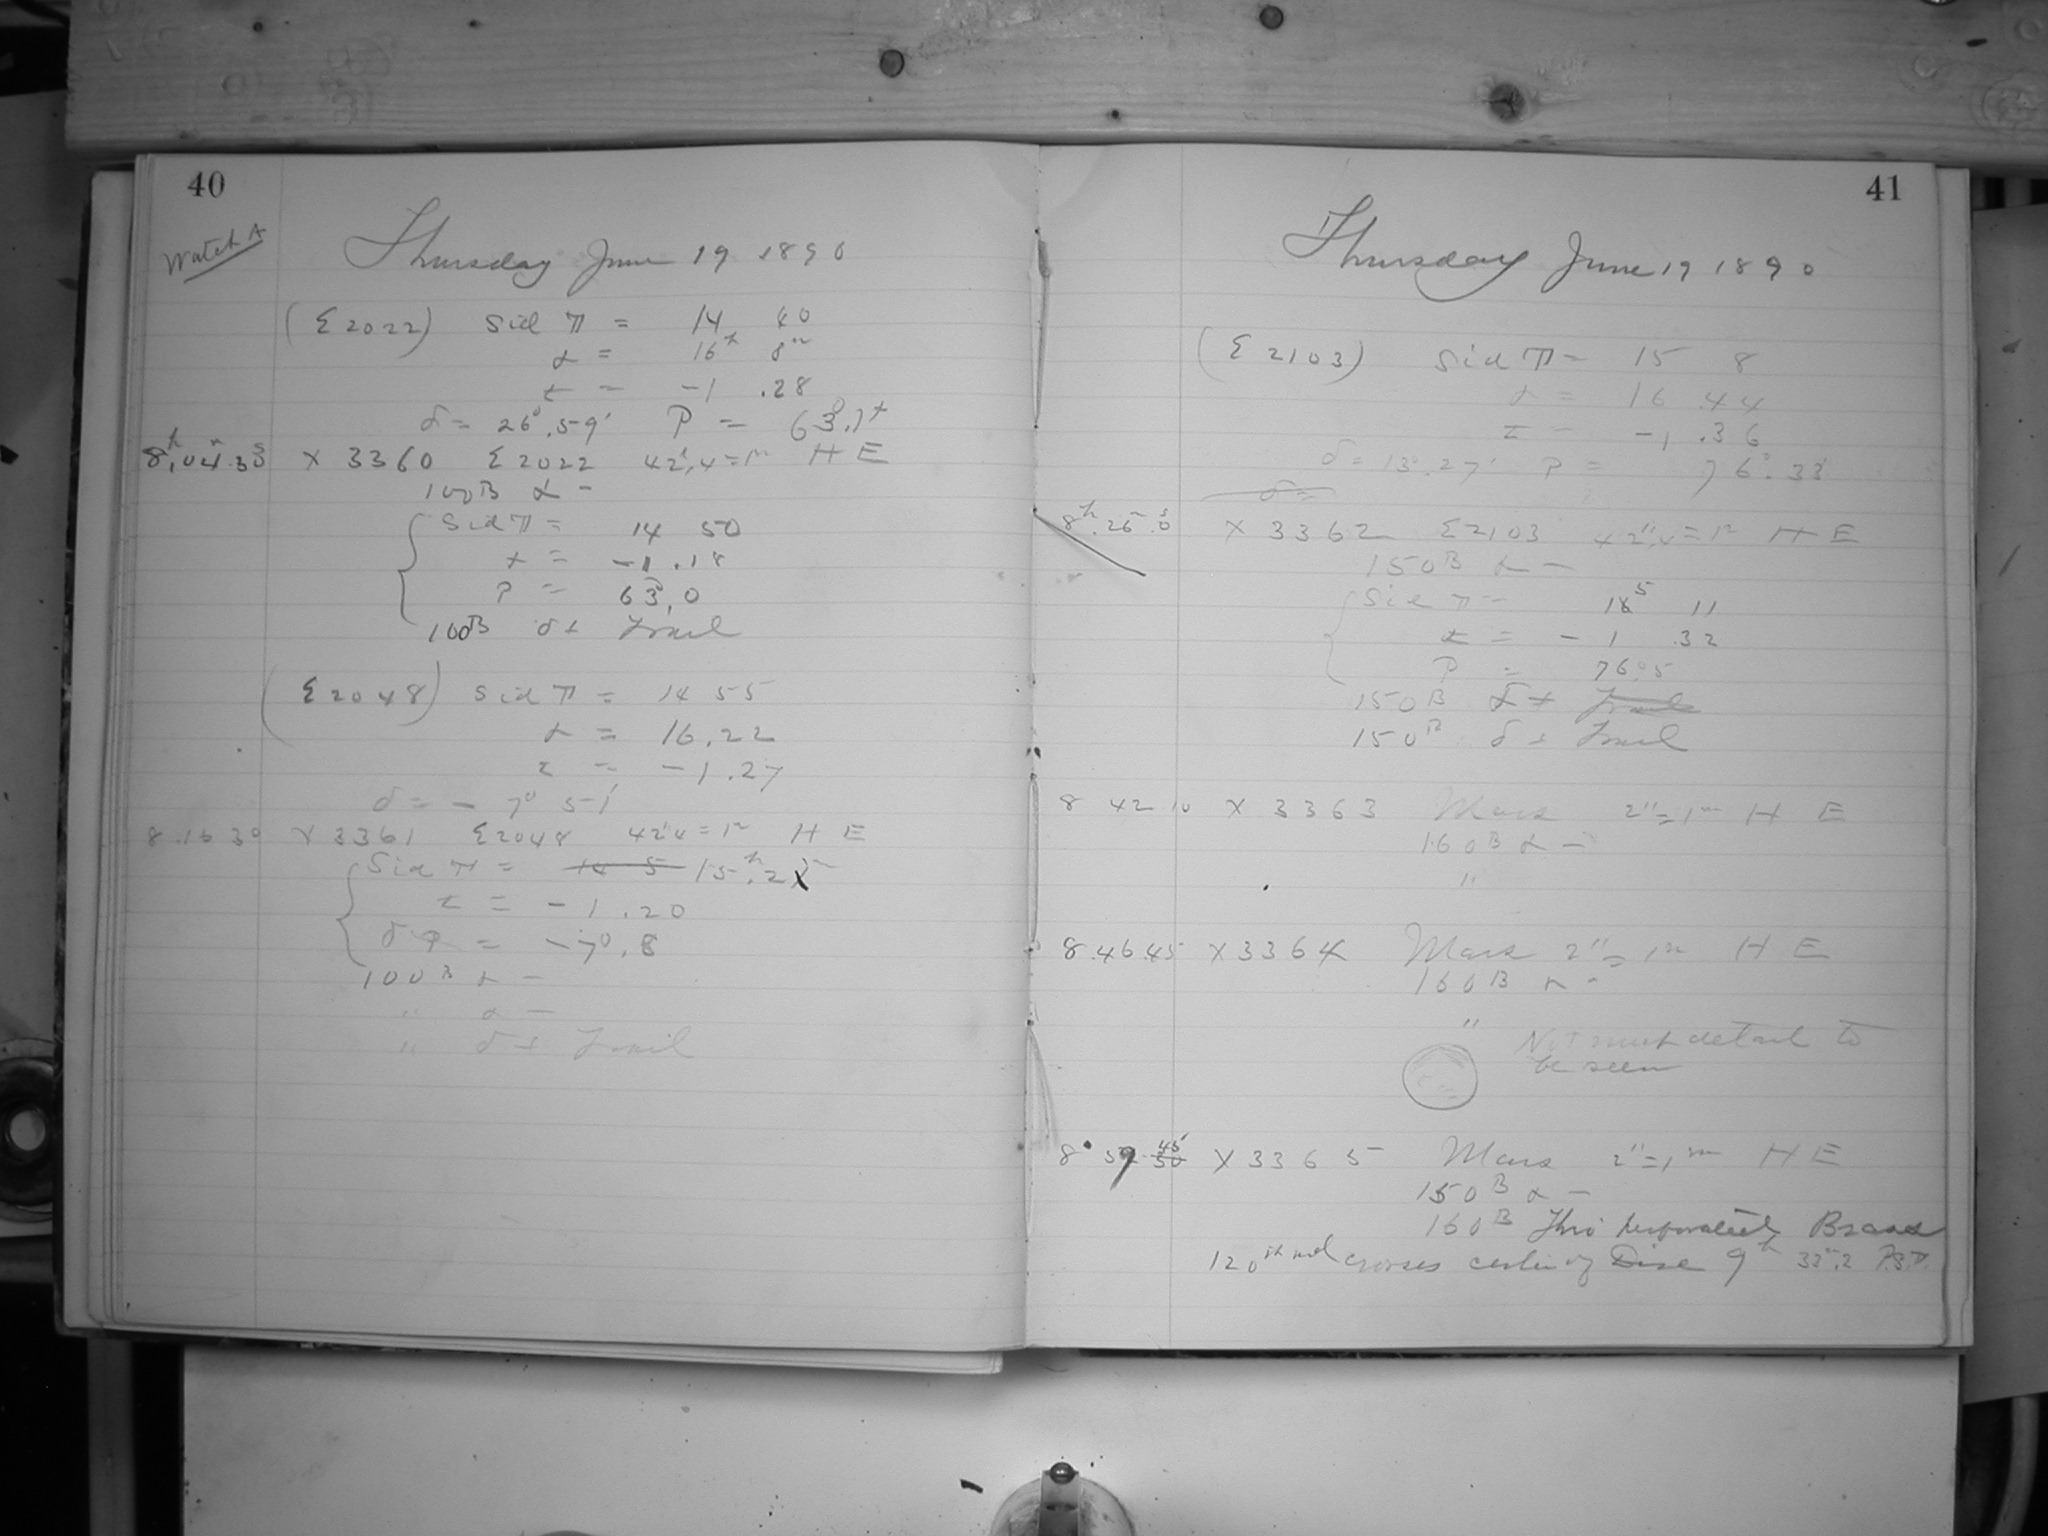 40
Watch A
Thursday June 19 1890
(Σ2022) Sid T = 14 40
α = 16h 8m
t = -1 .28
δ = 26°.59' P = 63°.1+
8h.04m.30s X 3360 Σ2022 42",4=1m HE
100B α -
Sid T = 14 50
t = -1 .18
P = 63°,0
100B δ+ Trail
(Σ2048) Sid T = 14 55
α = 16,22
t = -1.27
δ = - 7° 51'
8.16 30 X 3361 Σ2048 42"4=1m HE
Sid T = 14 5 15h.2m
t = -1.20
δ P = -7°.8
100B α -
" α -
" δ+ Trail
41
Thursday June 19 1890
(Σ2103) Sid T = 15 8
α = 16.44
t = -1.36
δ = 13°.27' P = 76°.33'
δ =
8h.26m.0s X 3362 Σ2103 42",4=1m HE
150B α -
Sid T = 15 11
t = -1 .32
P = 76°.5
150B δ+ Trail
150B δ+ Trail
8 42 10 X 3363 Mars 2"=1m HE
160B α -
"
8.46.45 X 3364 Mars 2"=1m HE
160B α -
" Not much detail to
be seen
8 59 50 45 X 3365 Mars 2"=1m HE
150B α -
160B Thro' perforated Brass
120th mer crosses center of Disc 9h 32m.2 P.S.T.